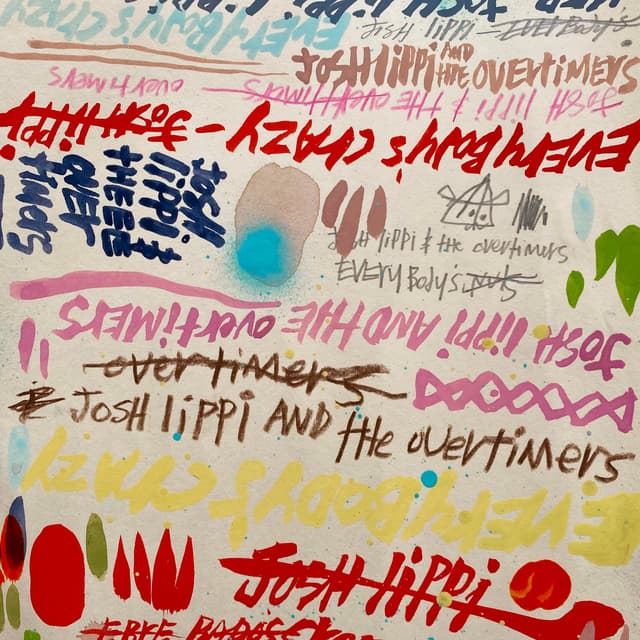 JOSH lippi
EVERYBODY'S CRAZY
JOSH lippi – EVERYBODY'S
JOSH lippi AND THE OVERTIMERS
overtimers
JOSH lippi & THE OVERTIMERS
EVERYBODY'S CRAZY – JOSH lippi
JOSH lippi & THE OVERTIMERS
JOSH lippi & the overtimers
EVERYBody's
JOSH lippi AND THE OVERTIMERS
overtimers
JOSH lippi AND the overtimers
EVERYBODY'S CRAZY
JOSH lippi